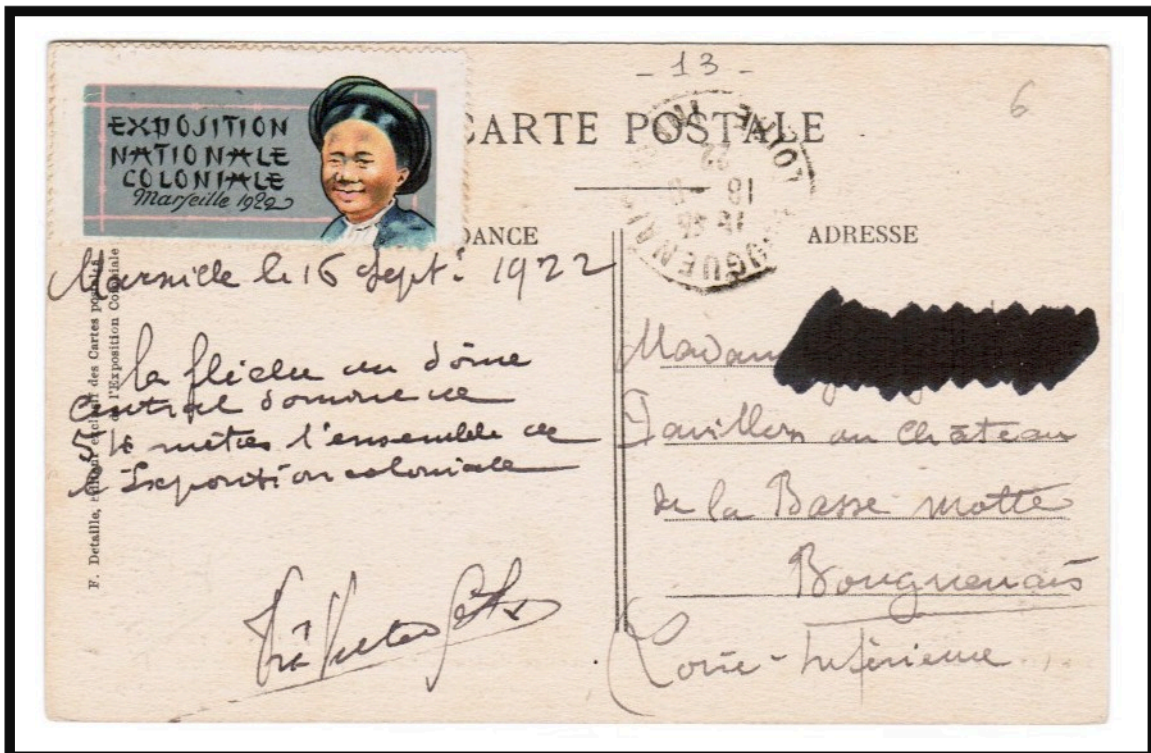 - 13 -
6
EXPOSITION
NATIONALE
COLONIALE
Marseille 1922
CARTE POSTALE
DANCE
ADRESSE
BOUGUENAIS
LOIRE INF
18
22
F. Detaille, exclusif des Cartes postales
de l'Exposition Coloniale
Marseille le 16 Sept. 1922
la flèche du dôme
Central domine de
mètres l'ensemble de
l'Exposition coloniale
Madam
Pavillon du Château
de la Basse motte
Bouguenais
Loire-Inférieure